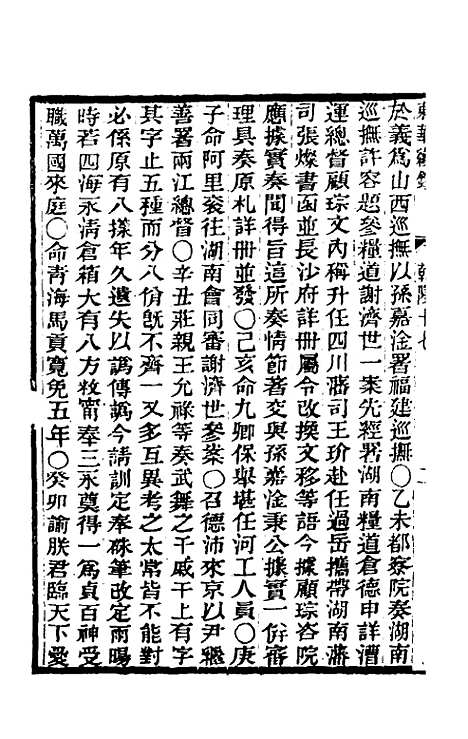 東華續錄　乾隆十七　二
於義爲山西巡撫以孫嘉淦署福建巡撫〇乙未都察院奏湖南
巡撫許容題參糧道謝濟世一案先經署湖南糧道倉德申詳漕
運總督顧琮文內稱升任四川藩司王玠赴任過岳攜帶湖南藩
司張燦書函並長沙府詳冊屬令改換文移等語今據顧琮咨院
應據實奏聞得旨這所奏情節著交與孫嘉淦秉公據實一併審
理具奏原札詳冊並發〇己亥命九卿保舉堪任河工人員〇庚
子命阿里袞往湖南會同審謝濟世參案〇召德沛來京以尹繼
善署兩江總督〇辛丑莊親王允祿等奏武舞之干戚干上有字
其字止五種而分八佾旣不齊一又多互異考之太常皆不能對
必係原有八㨾年久遺失以譌傳譌今請訓定奉硃筆改定雨暘
時若四海永淸倉箱大有八方敉甯奉三永奠得一爲貞百神受
職萬國來庭〇命靑海馬貢寬免五年〇癸卯諭朕君臨天下愛